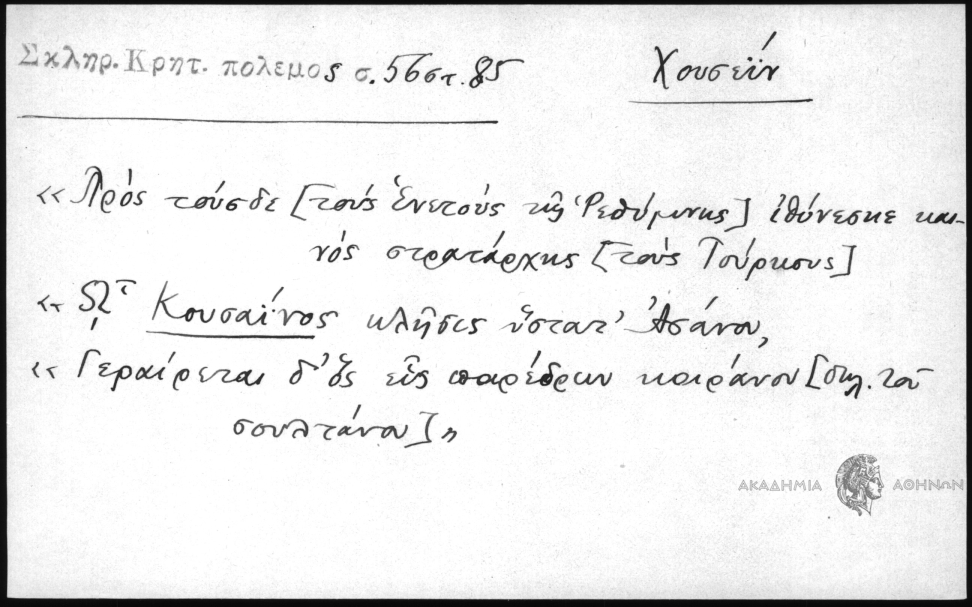 Σκληρ. Κρητ. πολεμος σ. 56 στ. 85
Χουσεΐν
« Πρὸς τούσδε [τοὺς Ἑνετοὺς τῆς Ῥεθύμνης] ἰθύνεσκε και-
νὸς στρατάρχης [τοὺς Τούρκους]
« ᾯτ Κουσαΐνος κλῆσις ὕστατ' Ἀσάνου,
« Γεραίρεται δ' ὃς εἷς παρέδρων κοιράνου [δηλ. τοῦ
σουλτάνου] »
ΑΚΑΔΗΜΙΑ ΑΘΗΝΩΝ